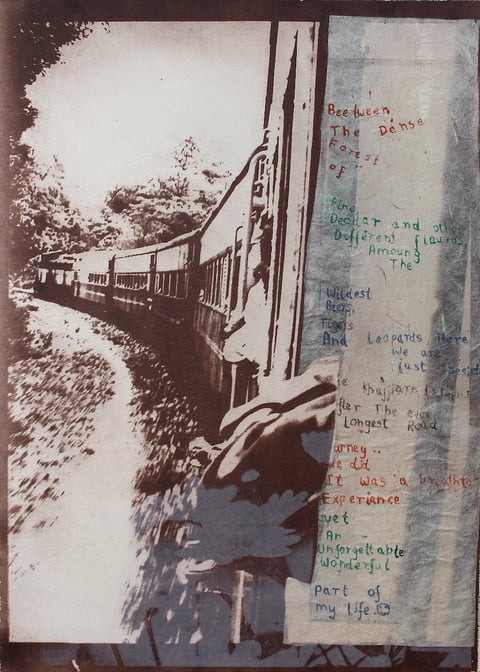 Beetween
The Dense
Forest
of
Pine,
Deodar and
Different
Amoung
The
Wildest
Beers,
Tigers
And Leopards Here
We are
Just
Khajjiare
The ever
Longest Road
We did
It was a
Experiance
yet
An
Unforgettable
Wonderful
part of
my life.☺